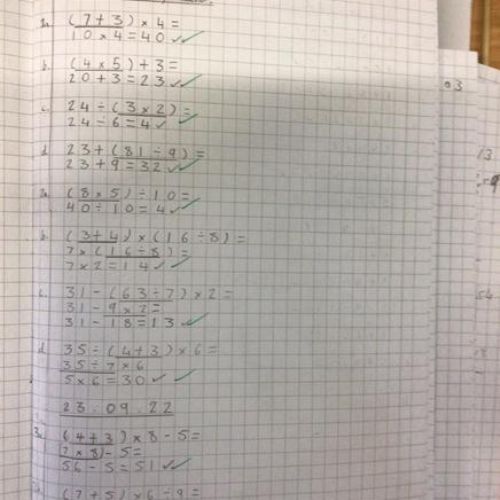 a. (7+3) × 4 =
10 × 4 = 40
b. (4 × 5) + 3 =
20 + 3 = 23
c. 24 ÷ (3 × 2) =
24 ÷ 6 = 4
d. 23 + (81 ÷ 9) =
23 + 9 = 32
(8 × 5) ÷ 10 =
40 ÷ 10 = 4
b. (3+4) × (16 ÷ 8) =
7 × (16 ÷ 8) =
7 × 2 = 14
c. 31 - (63 ÷ 7) × 2 =
31 - 9 × 2 =
31 - 18 = 13
d. 35 ÷ (4+3) × 6 =
35 ÷ 7 × 6
5 × 6 = 30
23.09.22
(4+3) × 8 - 5 =
(7 × 8) - 5 =
56 - 5 = 51
(7+5) × 6 ÷ 9 =
03
13
54